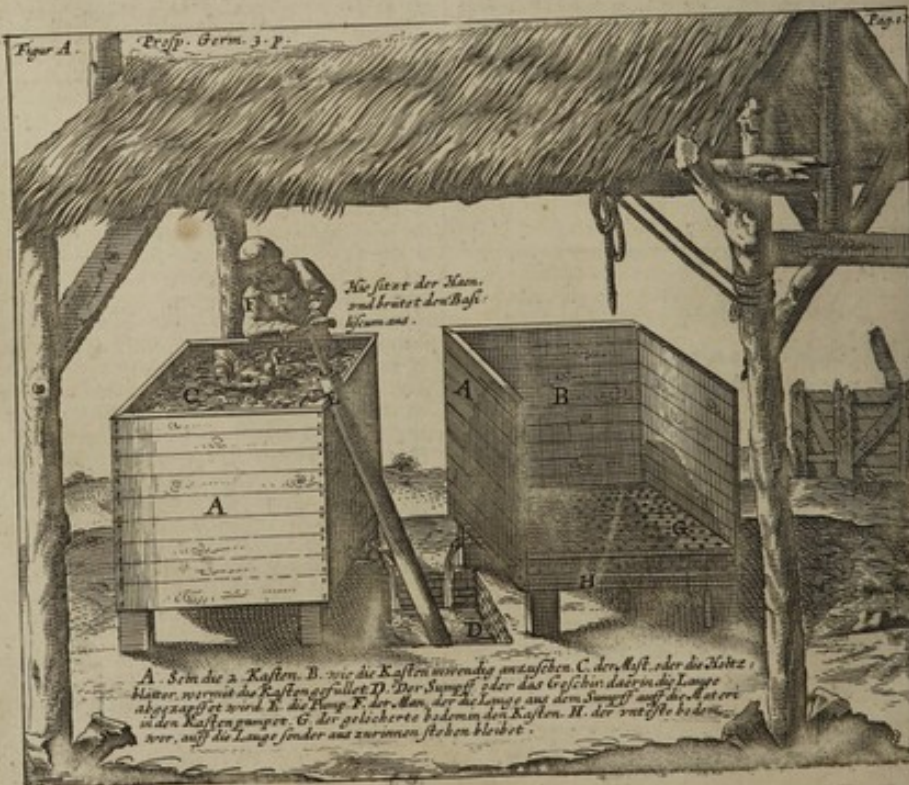 Figur A.
Prosp. Germ. 3. p.
Pag. 1.
Hie sitzt der Haen,
vnd brütet den Basi:
liscum aus.
F
C
E
A
A
B
G
H
D
A. Sein die 2. Kasten. B. wie die Kasten inwendig anzusehen. C. der Mist, oder die Holtz:
blätter, wormit die Kasten gefüllet. D. Der Sumpff oder das Geschir: daerin die Lauge
abgezapffet wird. E. die Pump. F. der Man, der die Lauge aus dem Sumpff auff die Materi
in den Kasten pumpet. G. der gelöcherte bodem in den Kasten. H. der vnteste bodem,
wor, auff die Lauge sonder aus zurinnen stehen bleibet.